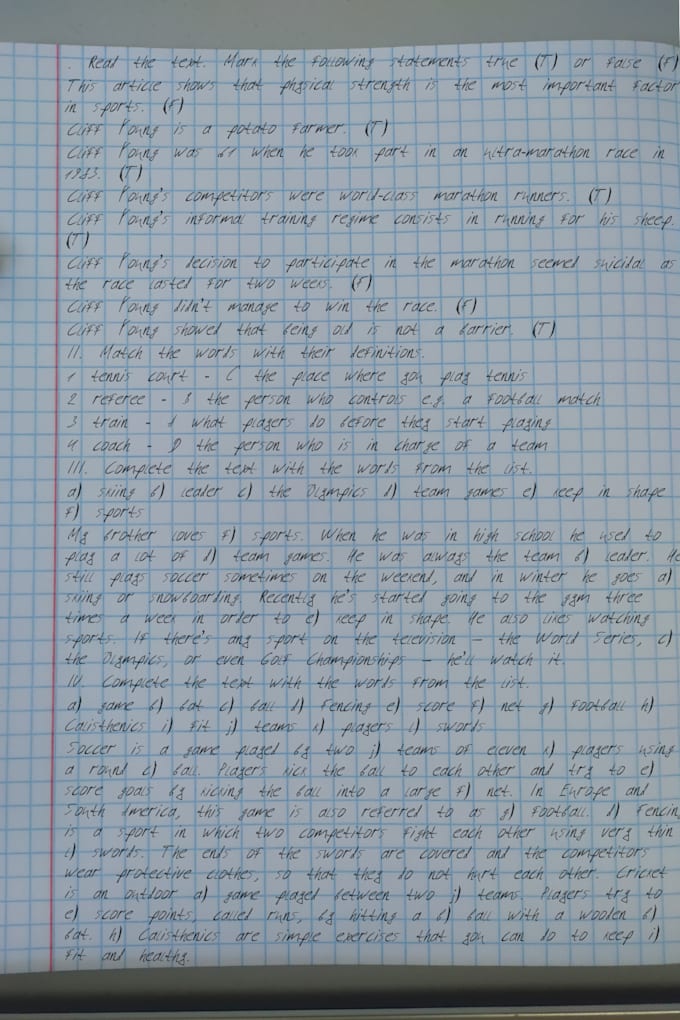 . Read the text. Mark the following statements true (T) or false (F)
This article shows that physical strength is the most important factor
in sports. (F)
Cliff Young is a potato farmer. (T)
Cliff Young was 61 when he took part in an ultra-marathon race in
1983. (T)
Cliff Young's competitors were world-class marathon runners. (T)
Cliff Young's informal training regime consists in running for his sheep.
(T)
Cliff Young's decision to participate in the marathon seemed suicidal as
the race lasted for two weeks. (F)
Cliff Young didn't manage to win the race. (F)
Cliff Young showed that being old is not a barrier. (T)
II. Match the words with their definitions.
1 tennis court - C the place where you play tennis
2 referee - B the person who controls e.g. a football match
3 train - A what players do before they start playing
4 coach - D the person who is in charge of a team
III. Complete the text with the words from the list.
a) skiing b) leader c) the Olympics d) team games e) keep in shape
f) sports
My brother loves f) sports. When he was in high school he used to
play a lot of d) team games. He was always the team b) leader. He
still plays soccer sometimes on the weekend, and in winter he goes a)
skiing or snowboarding. Recently he's started going to the gym three
times a week in order to e) keep in shape. He also likes watching
sports. If there's any sport on the television – the World Series, c)
the Olympics, or even Golf Championships – he'll watch it.
IV. Complete the text with the words from the list.
a) game b) bat c) ball d) fencing e) score f) net g) football h)
Calisthenics i) fit j) teams k) players l) swords
Soccer is a game played by two j) teams of eleven k) players using
a round c) ball. Players kick the ball to each other and try to e)
score goals by kicking the ball into a large f) net. In Europe and
South America, this game is also referred to as g) football. d) Fencing
is a sport in which two competitors fight each other using very thin
l) swords. The ends of the swords are covered and the competitors
wear protective clothes, so that they do not hurt each other. Cricket
is an outdoor a) game played between two j) teams. Players try to
e) score points, called runs, by hitting a b) ball with a wooden b)
bat. h) Calisthenics are simple exercises that you can do to keep i)
fit and healthy.